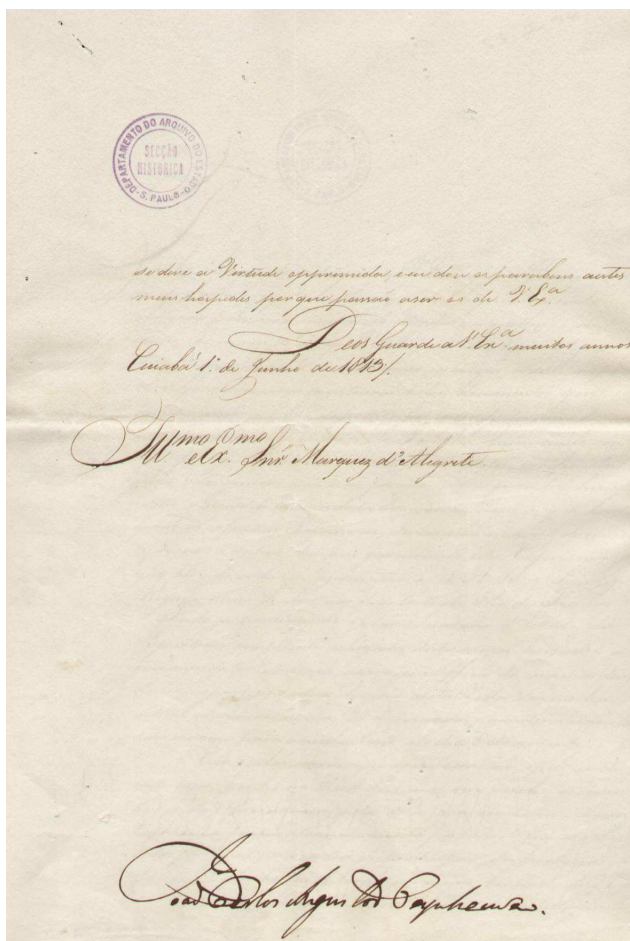 DEPARTAMENTO DO ARQUIVO DO ESTADO
SECÇÃO
HISTORICA
S. PAULO
se deve a Virtude opprimida, e eu dou os parabens aestes
meus hospedes porque passaõ aser os de V. Ex.ª
Deos Guarde a V. Ex.ª muitos annos
Cuiabá 1.º de Junho de 1813/.
Illmo e Ex.mo Snr. Marquez d'Alegrete
João Carlos Augusto d'Oeynhausen.